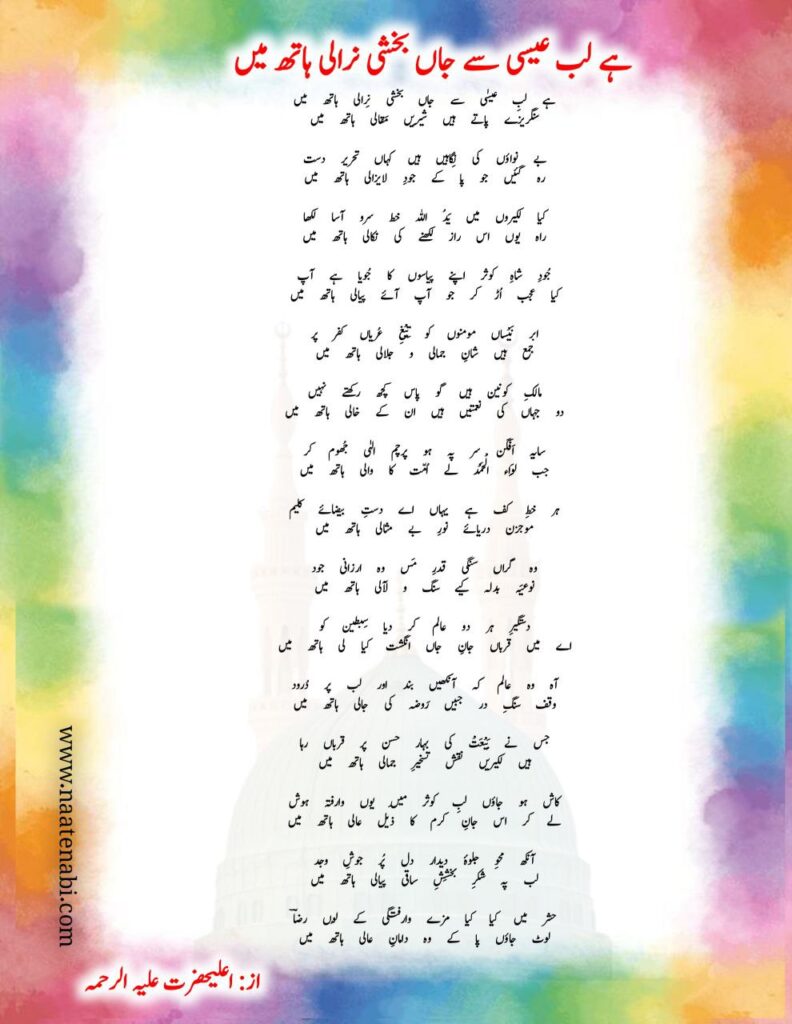 ہے لب عیسی سے جاں بخشی نرالی ہاتھ میں
ہے لبِ عیسٰی سے جاں بخشی نِرالی ہاتھ میں
سنگریزے پاتے ہیں شیریں مقالی ہاتھ میں
بے نواؤں کی نِگاہیں ہیں کہاں تحریر دست
رہ گئیں جو پا کے جودِ لایزالی ہاتھ میں
کیا لکیروں میں یَدُ اللہ خط سرو آسا لکھا
راہ یوں اس راز لکھنے کی نکالی ہاتھ میں
جُودِ شاہِ کوثر اپنے پیاسوں کا جُویا ہے آپ
کیا عجب اُڑ کر جو آپ آئے پیالی ہاتھ میں
ابر نَیْساں مومنوں کو تیغِ عُریاں کفر پر
جمع ہیں شانِ جمالی و جلالی ہاتھ میں
مالکِ کونین ہیں گو پاس کچھ رکھتے نہیں
دو جہاں کی نعمتیں ہیں ان کے خالی ہاتھ میں
سایہ اَفگن سر پہ ہو پرچم الٰہی جُھوم کر
جب لِوَاء الْحَمْد لے اُمّت کا والی ہاتھ میں
ہر خطِ کف ہے یہاں اے دستِ بیضائے کلیم
موجزن دریائے نورِ بے مثالی ہاتھ میں
وہ گراں سنگی قدرِ مَس وہ ارزانی جود
نوعیّہ بدلہ کیے سنگ و لآلی ہاتھ میں
دستگیر ہر دو عالم کر دیا سِبطین کو
اے میں قرباں جانِ جاں انگشت کیا لی ہاتھ میں
آہ وہ عالم کہ آنکھیں بند اور لب پر دُرود
وقف سنگِ در جبیں رَوضہ کی جالی ہاتھ میں
جس نے بَیْعَتْ کی بہارِ حسن پر قرباں رہا
ہیں لکیریں نقش تسخیرِ جمالی ہاتھ میں
کاش ہو جاؤں لبِ کوثر میں یوں وارفتہ ہوش
لے کر اس جانِ کرم کا ذیل عالی ہاتھ میں
آنکھ محوِ جلوۂ دیدار دل پُر جوشِ وجد
لب پہ شکرِ بخشِشِ ساقی پیالی ہاتھ میں
حشر میں کیا کیا مزے وارفتگی کے لوں رضاؔ
لوٹ جاؤں پا کے وہ دامانِ عالی ہاتھ میں
www.naatenabi.com
از: اعلیحضرت علیہ الرحمہ